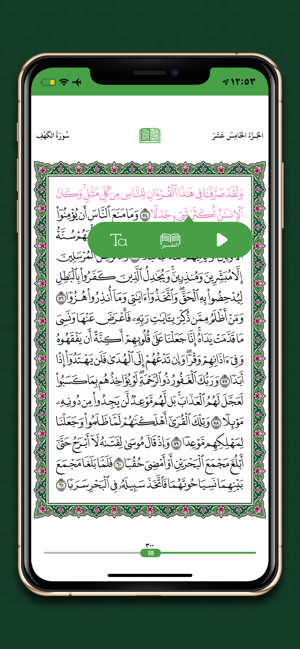 ١٢:٥٣
سُورَةُ الكَهْفِ
الجُزْءُ الخَامِسَ عَشَرَ
وَلَقَدْ صَرَّفْنَا فِي هَٰذَا ٱلْقُرْءَانِ لِلنَّاسِ مِن كُلِّ مَثَلٍ وَكَانَ
ٱلْإِنسَٰنُ أَكْثَرَ شَيْءٍ جَدَلًا ٥٤ وَمَا مَنَعَ ٱلنَّاسَ أَن يُؤْمِنُوٓا۟
سُنَّةُ
Ta
التفسير
ٱلْمُرْسَلِينَ
إِلَّا مُبَشِّرِينَ وَمُنذِرِينَ وَيُجَٰدِلُ ٱلَّذِينَ كَفَرُوا۟ بِٱلْبَٰطِلِ
لِيُدْحِضُوا۟ بِهِ ٱلْحَقَّ وَٱتَّخَذُوٓا۟ ءَايَٰتِي وَمَآ أُنذِرُوا۟ هُزُوًا ٥٦
وَمَنْ أَظْلَمُ مِمَّن ذُكِّرَ بِـَٔايَٰتِ رَبِّهِۦ فَأَعْرَضَ عَنْهَا وَنَسِيَ
مَا قَدَّمَتْ يَدَاهُ إِنَّا جَعَلْنَا عَلَىٰ قُلُوبِهِمْ أَكِنَّةً أَن يَفْقَهُوهُ
وَفِيٓ ءَاذَانِهِمْ وَقْرًا وَإِن تَدْعُهُمْ إِلَى ٱلْهُدَىٰ فَلَن يَهْتَدُوٓا۟ إِذًا
أَبَدًا ٥٧ وَرَبُّكَ ٱلْغَفُورُ ذُو ٱلرَّحْمَةِ لَوْ يُؤَاخِذُهُم بِمَا كَسَبُوا۟
لَعَجَّلَ لَهُمُ ٱلْعَذَابَ بَل لَّهُم مَّوْعِدٌ لَّن يَجِدُوا۟ مِن دُونِهِۦ
مَوْئِلًا ٥٨ وَتِلْكَ ٱلْقُرَىٰٓ أَهْلَكْنَٰهُمْ لَمَّا ظَلَمُوا۟ وَجَعَلْنَا
لِمَهْلِكِهِم مَّوْعِدًا ٥٩ وَإِذْ قَالَ مُوسَىٰ لِفَتَىٰهُ لَآ أَبْرَحُ حَتَّىٰٓ
أَبْلُغَ مَجْمَعَ ٱلْبَحْرَيْنِ أَوْ أَمْضِيَ حُقُبًا ٦٠ فَلَمَّا بَلَغَا مَجْمَعَ
بَيْنِهِمَا نَسِيَا حُوتَهُمَا فَٱتَّخَذَ سَبِيلَهُۥ فِي ٱلْبَحْرِ سَرَبًا ٦١
٣٠٠